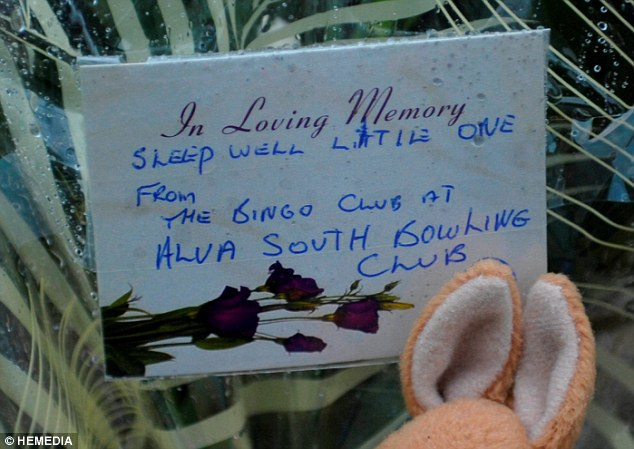 In Loving Memory
SLEEP WELL LITTLE ONE
FROM
THE BINGO CLUB AT
ALVA SOUTH BOWLING
CLUB
© HEMEDIA